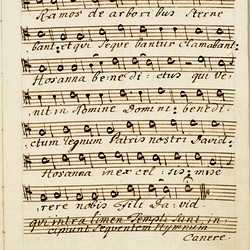 Ramos de arboribus Strene
bant. et qui Seque bantur Clamabant:
Hosanna be:ne:di: ctus qui Ve:
nit in Nomine Domini: benedi:
ctum regnum Patris nostri David.
Hosanna in ex: cel: sis: mise
rere nobis Fili Da: vid
qui intra limen Templi sunt, in:
cipiunt Sequentem Hymnum
Canere